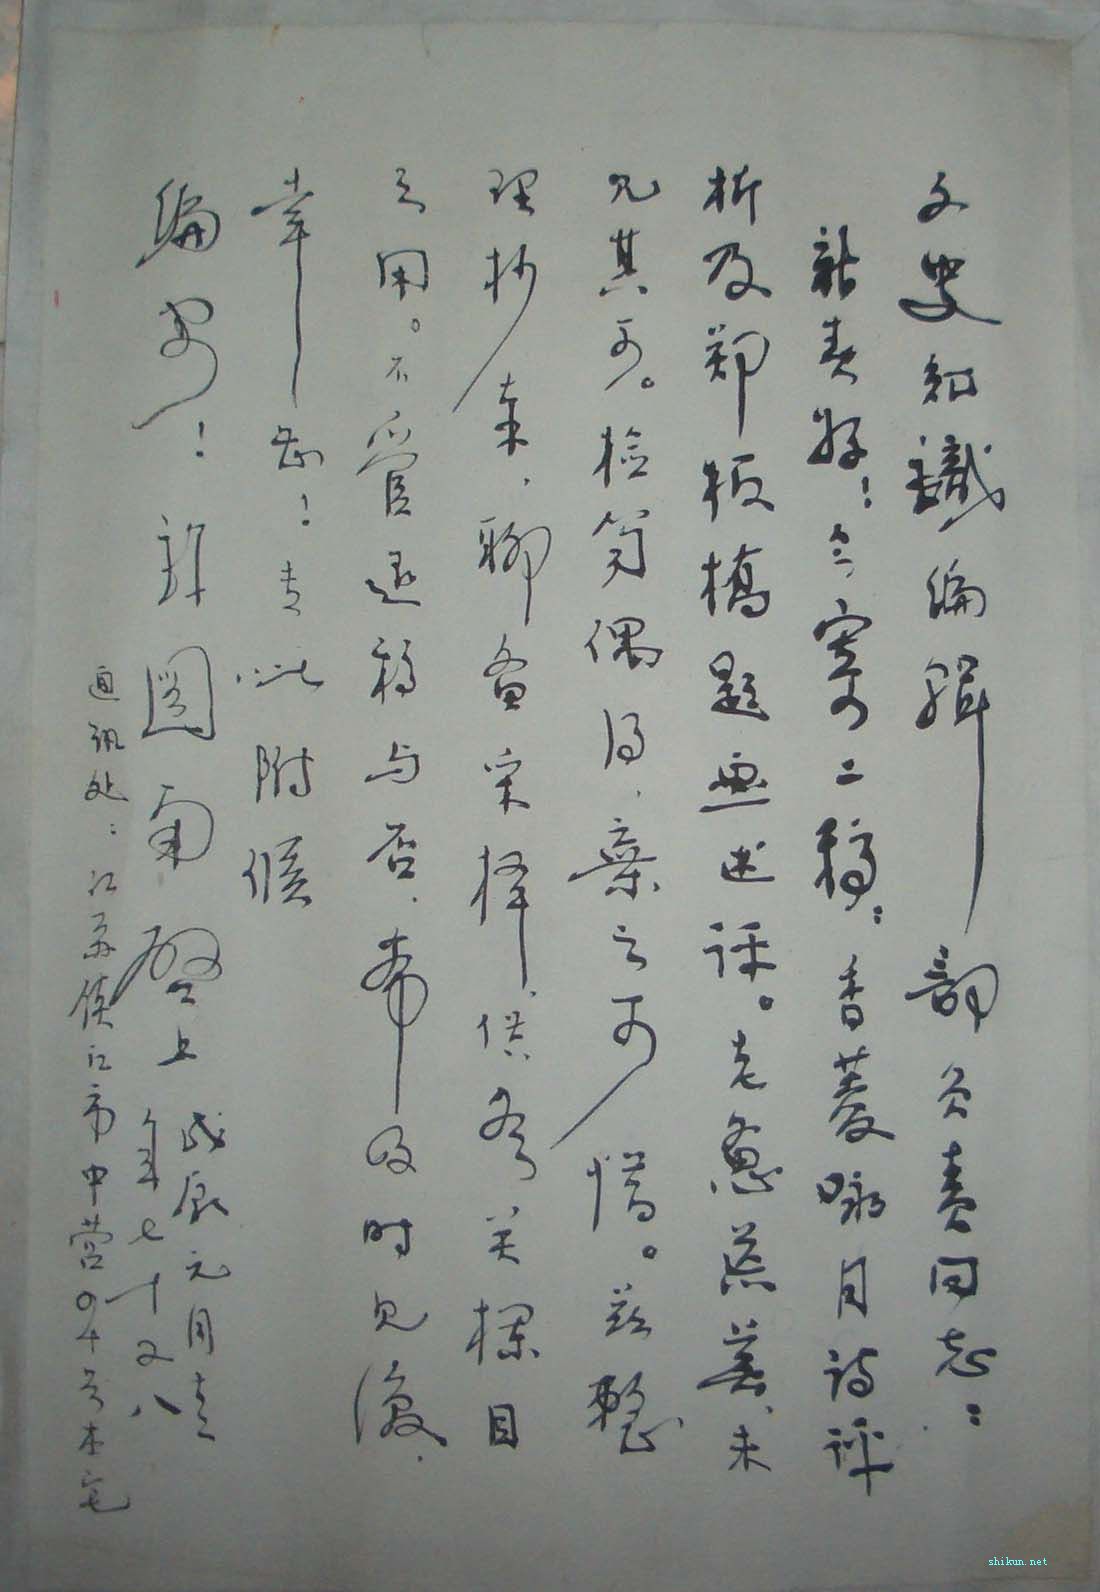 文史知識编辑部负责同志：
新春好！今寄二稿：香菱咏月诗评
析及郑板橋题画述评。老惫荒芜、未
见其可。检笥偶得，棄之可惜。兹整
理抄来，聊备采择，供参关栏目
之用。不管退稿与否，希及时见復，
幸甚！专此附候
编安！
圃南啓上 戊辰元月
年七十又八
通訊处：江苏镇江市中营94号本宅
shikun.net